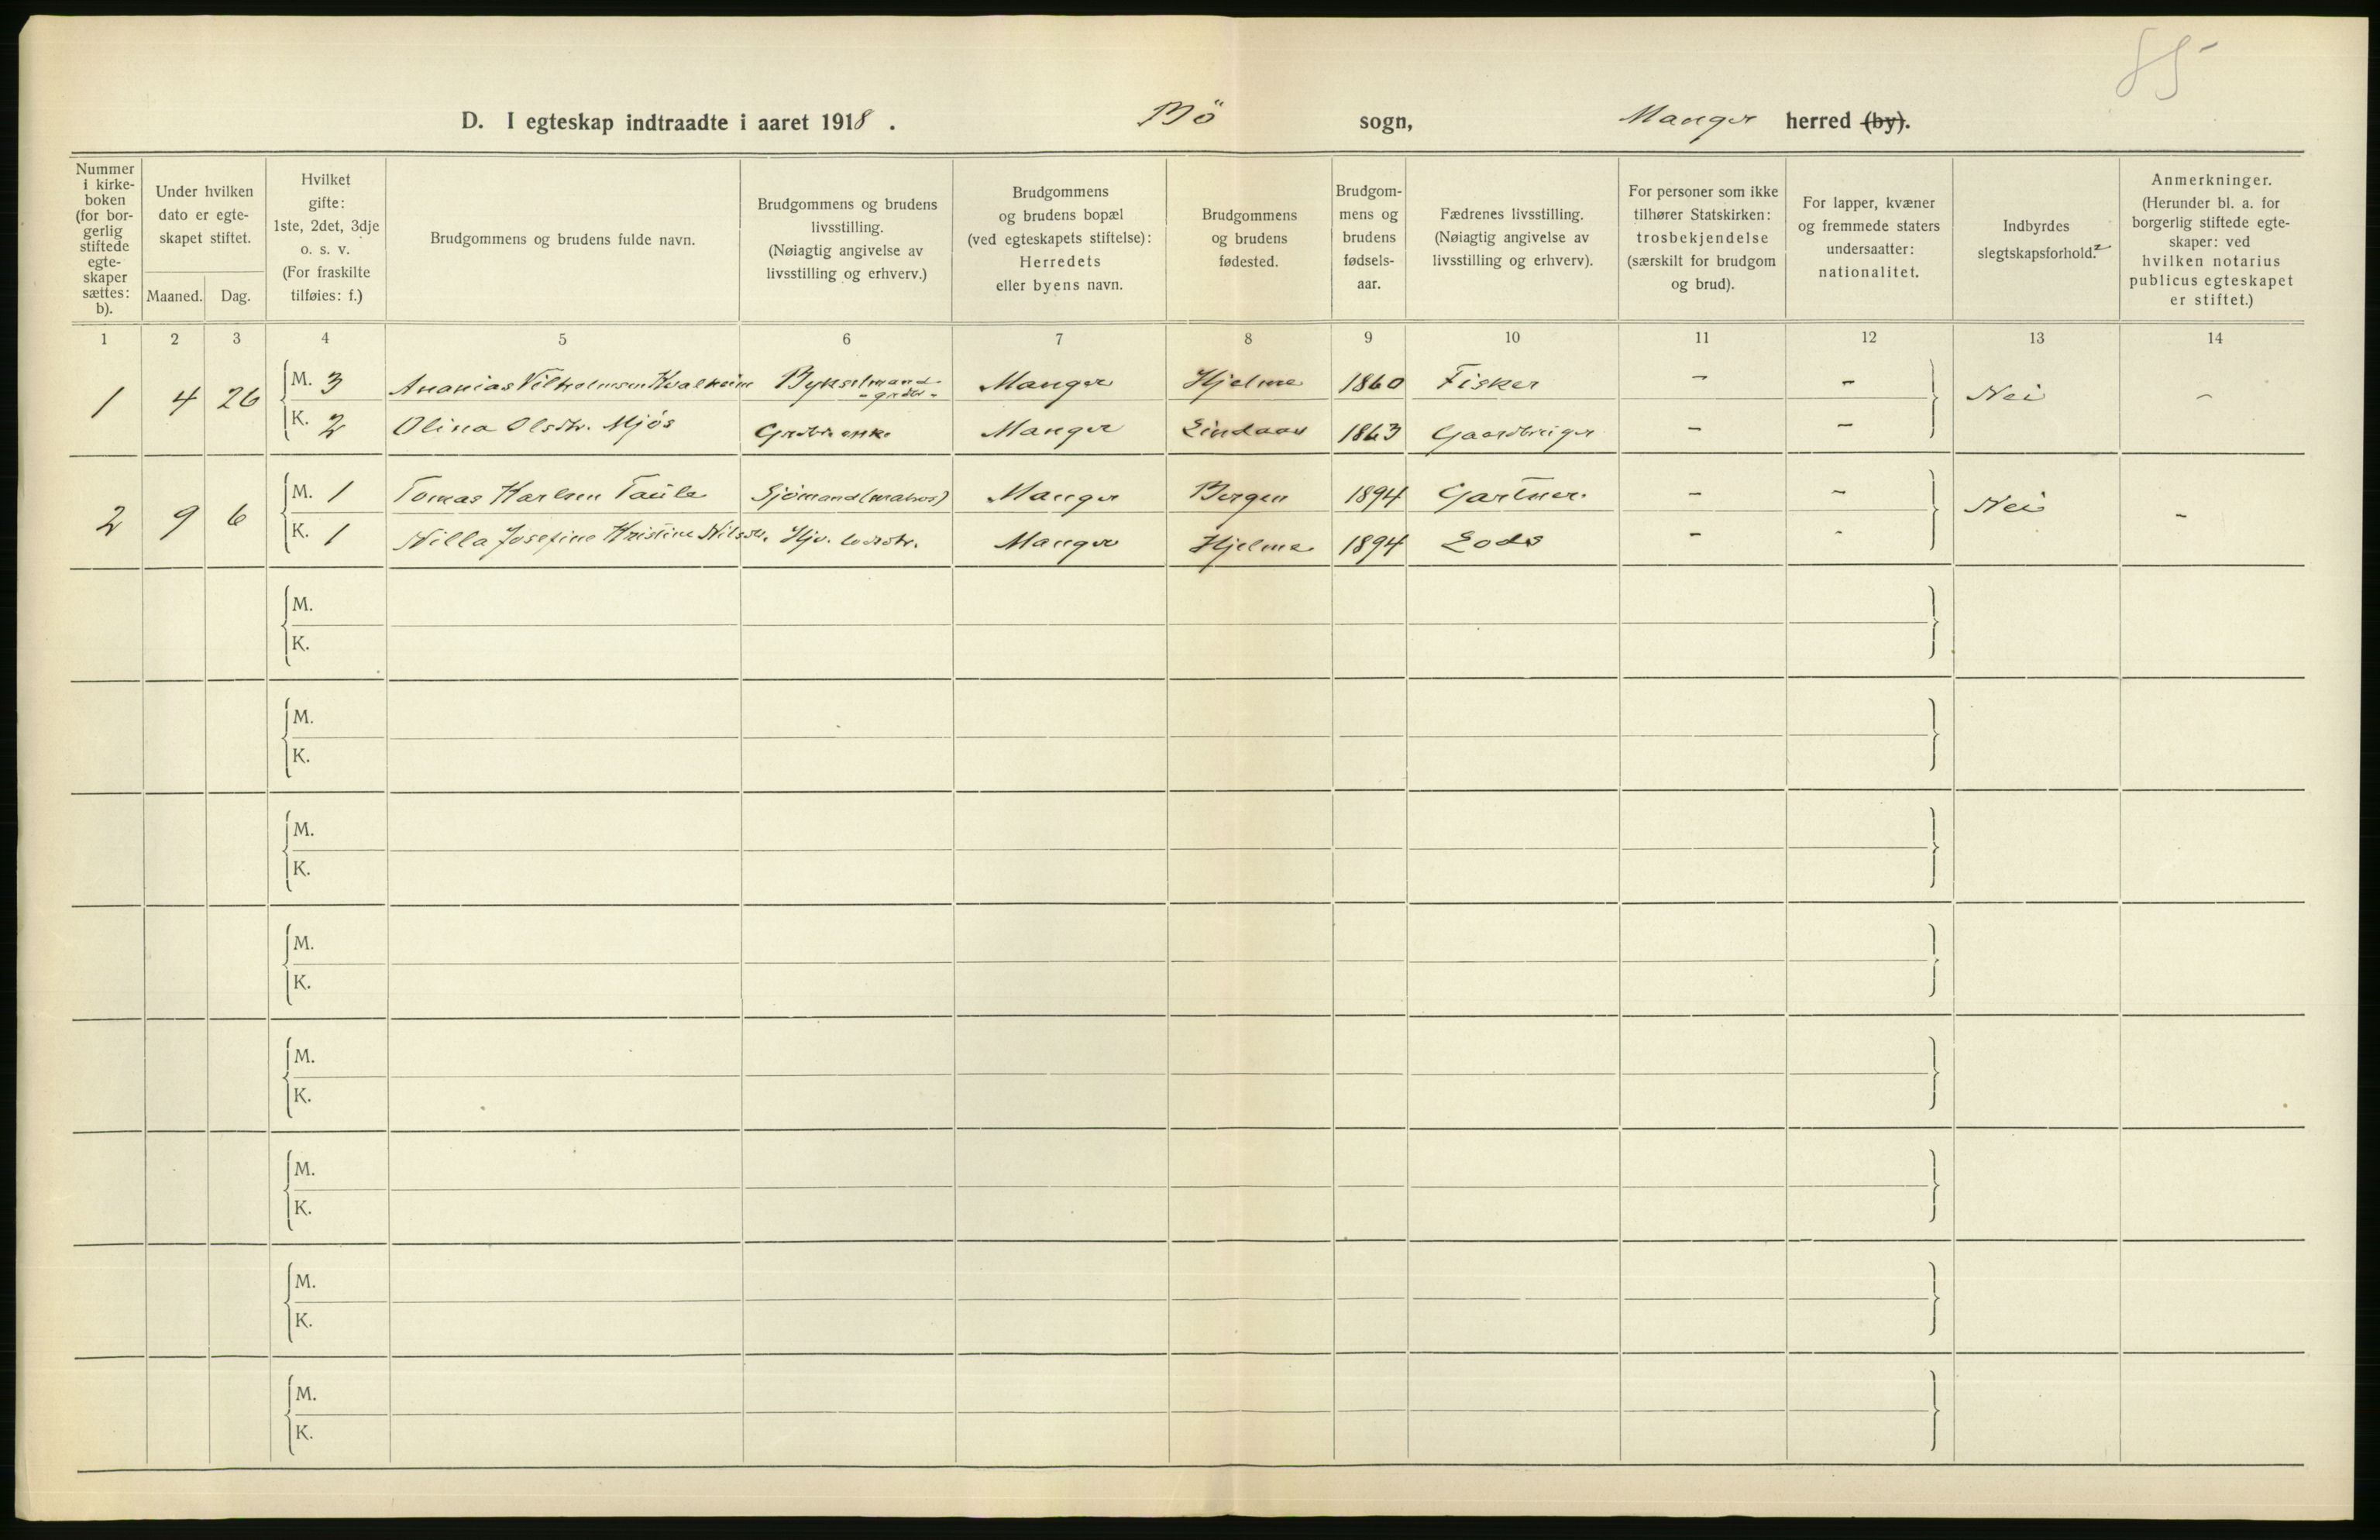 85
D. I egteskap indtraadte i aaret 1918. Bö sogn, Manger herred (by).
Nummer i kirke- boken (for bor- gerlig stiftede egte- skaper sættes: b).
Under hvilken dato er egte- skapet stiftet.
Maaned. Dag.
Hvilket gifte: 1ste, 2det, 3dje o. s. v. (For fraskilte tilføies: f.)
Brudgommens og brudens fulde navn.
Brudgommens og brudens livsstilling. (Nøiagtig angivelse av livsstilling og erhverv.)
Brudgommens og brudens bopæl (ved egteskapets stiftelse): Herredets eller byens navn.
Brudgommens og brudens fødested.
Brudgom- mens og brudens fødsels- aar.
Fædrenes livsstilling. (Nøiagtig angivelse av livsstilling og erhverv).
For personer som ikke tilhører Statskirken: trosbekjendelse (særskilt for brudgom og brud).
For lapper, kvæner og fremmede staters undersaatter: nationalitet.
Indbyrdes slegtskapsforhold.
Anmerkninger. (Herunder bl. a. for borgerlig stiftede egte- skaper: ved hvilken notarius publicus egteskapet er stiftet.)
1 2 3 4 5 6 7 8 9 10 11 12 13 14
1 4 26 M. 3 Ananias Vilhelmsen Kvalheim Bykselmand - Manger Hjelme 1860 Fisker - - Nei -
K. 2 Olina Olsdtr. Mjös Grdbr. enke Manger Lindaas 1863 Gaardbruger - -
2 9 6 M. 1 Tomas Karlsen Taule Sjömand (matros) Manger Bergen 1894 Gartner. - - Nei -
K. 1 Nilla Josefine Kristine Nilsdtr. Hjv. lodsdtr. Manger Hjelme 1894 Lods - -
M.
K.
M.
K.
M.
K.
M.
K.
M.
K.
M.
K.
M.
K.
M.
K.